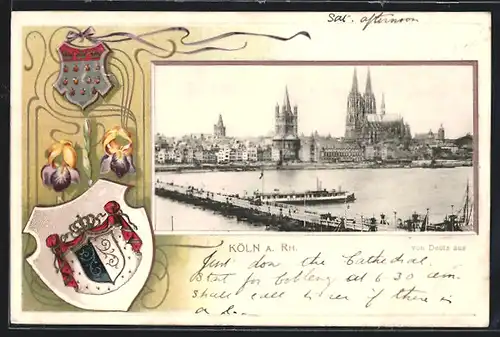 Sat. afternoon
KÖLN A. RH.
von Deutz aus
Just don the Cathedral.
Start for Coblenz at 6-30 am.
shall call here if there is
a